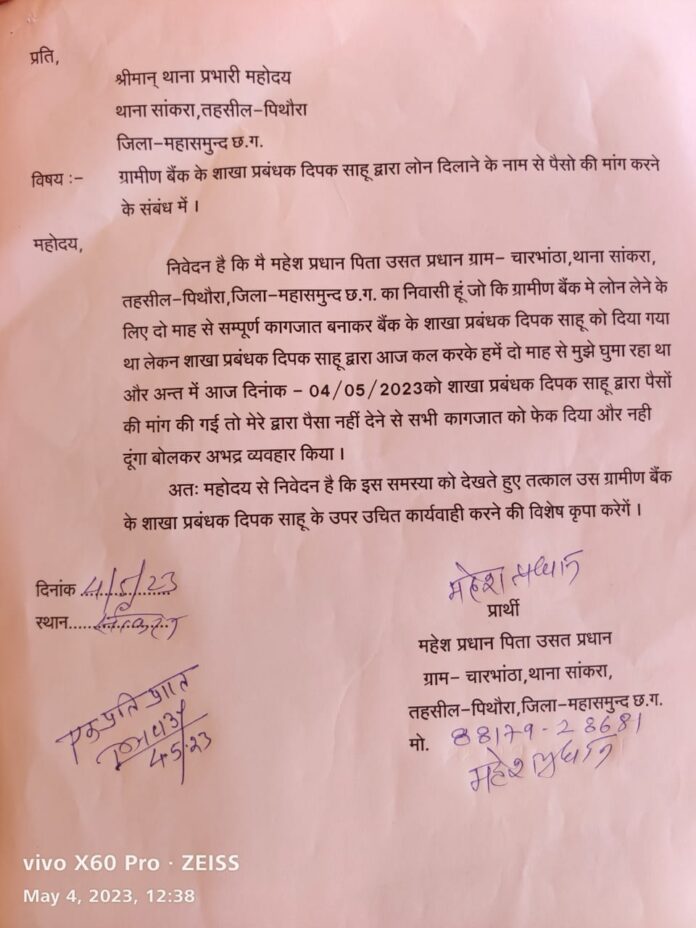 प्रति,
श्रीमान् थाना प्रभारी महोदय
थाना सांकरा,तहसील-पिथौरा
जिला-महासमुन्द छ.ग.
विषय :- ग्रामीण बैंक के शाखा प्रबंधक दिपक साहू द्वारा लोन दिलाने के नाम से पैसो की मांग करने
के संबंध में ।
महोदय,
निवेदन है कि मै महेश प्रधान पिता उसत प्रधान ग्राम- चारभांठा,थाना सांकरा,
तहसील-पिथौरा,जिला-महासमुन्द छ.ग. का निवासी हूं जो कि ग्रामीण बैंक मे लोन लेने के
लिए दो माह से सम्पूर्ण कागजात बनाकर बैंक के शाखा प्रबंधक दिपक साहू को दिया गया
था लेकन शाखा प्रबंधक दिपक साहू द्वारा आज कल करके हमें दो माह से मुझे घुमा रहा था
और अन्त में आज दिनांक - 04/05/2023को शाखा प्रबंधक दिपक साहू द्वारा पैसों
की मांग की गई तो मेरे द्वारा पैसा नहीं देने से सभी कागजात को फेक दिया और नही
दूंगा बोलकर अभद्र व्यवहार किया ।
अतः महोदय से निवेदन है कि इस समस्या को देखते हुए तत्काल उस ग्रामीण बैंक
के शाखा प्रबंधक दिपक साहू के उपर उचित कार्यवाही करने की विशेष कृपा करेगें ।
दिनांक 4/5/23
स्थान
महेश प्रधान
प्रार्थी
महेश प्रधान पिता उसत प्रधान
ग्राम- चारभांठा,थाना सांकरा,
तहसील-पिथौरा,जिला-महासमुन्द छ.ग.
मो. 88179-28681
महेश प्रधान
एक प्रति प्राप्त
4.5.23
vivo X60 Pro · ZEISS
May 4, 2023, 12:38